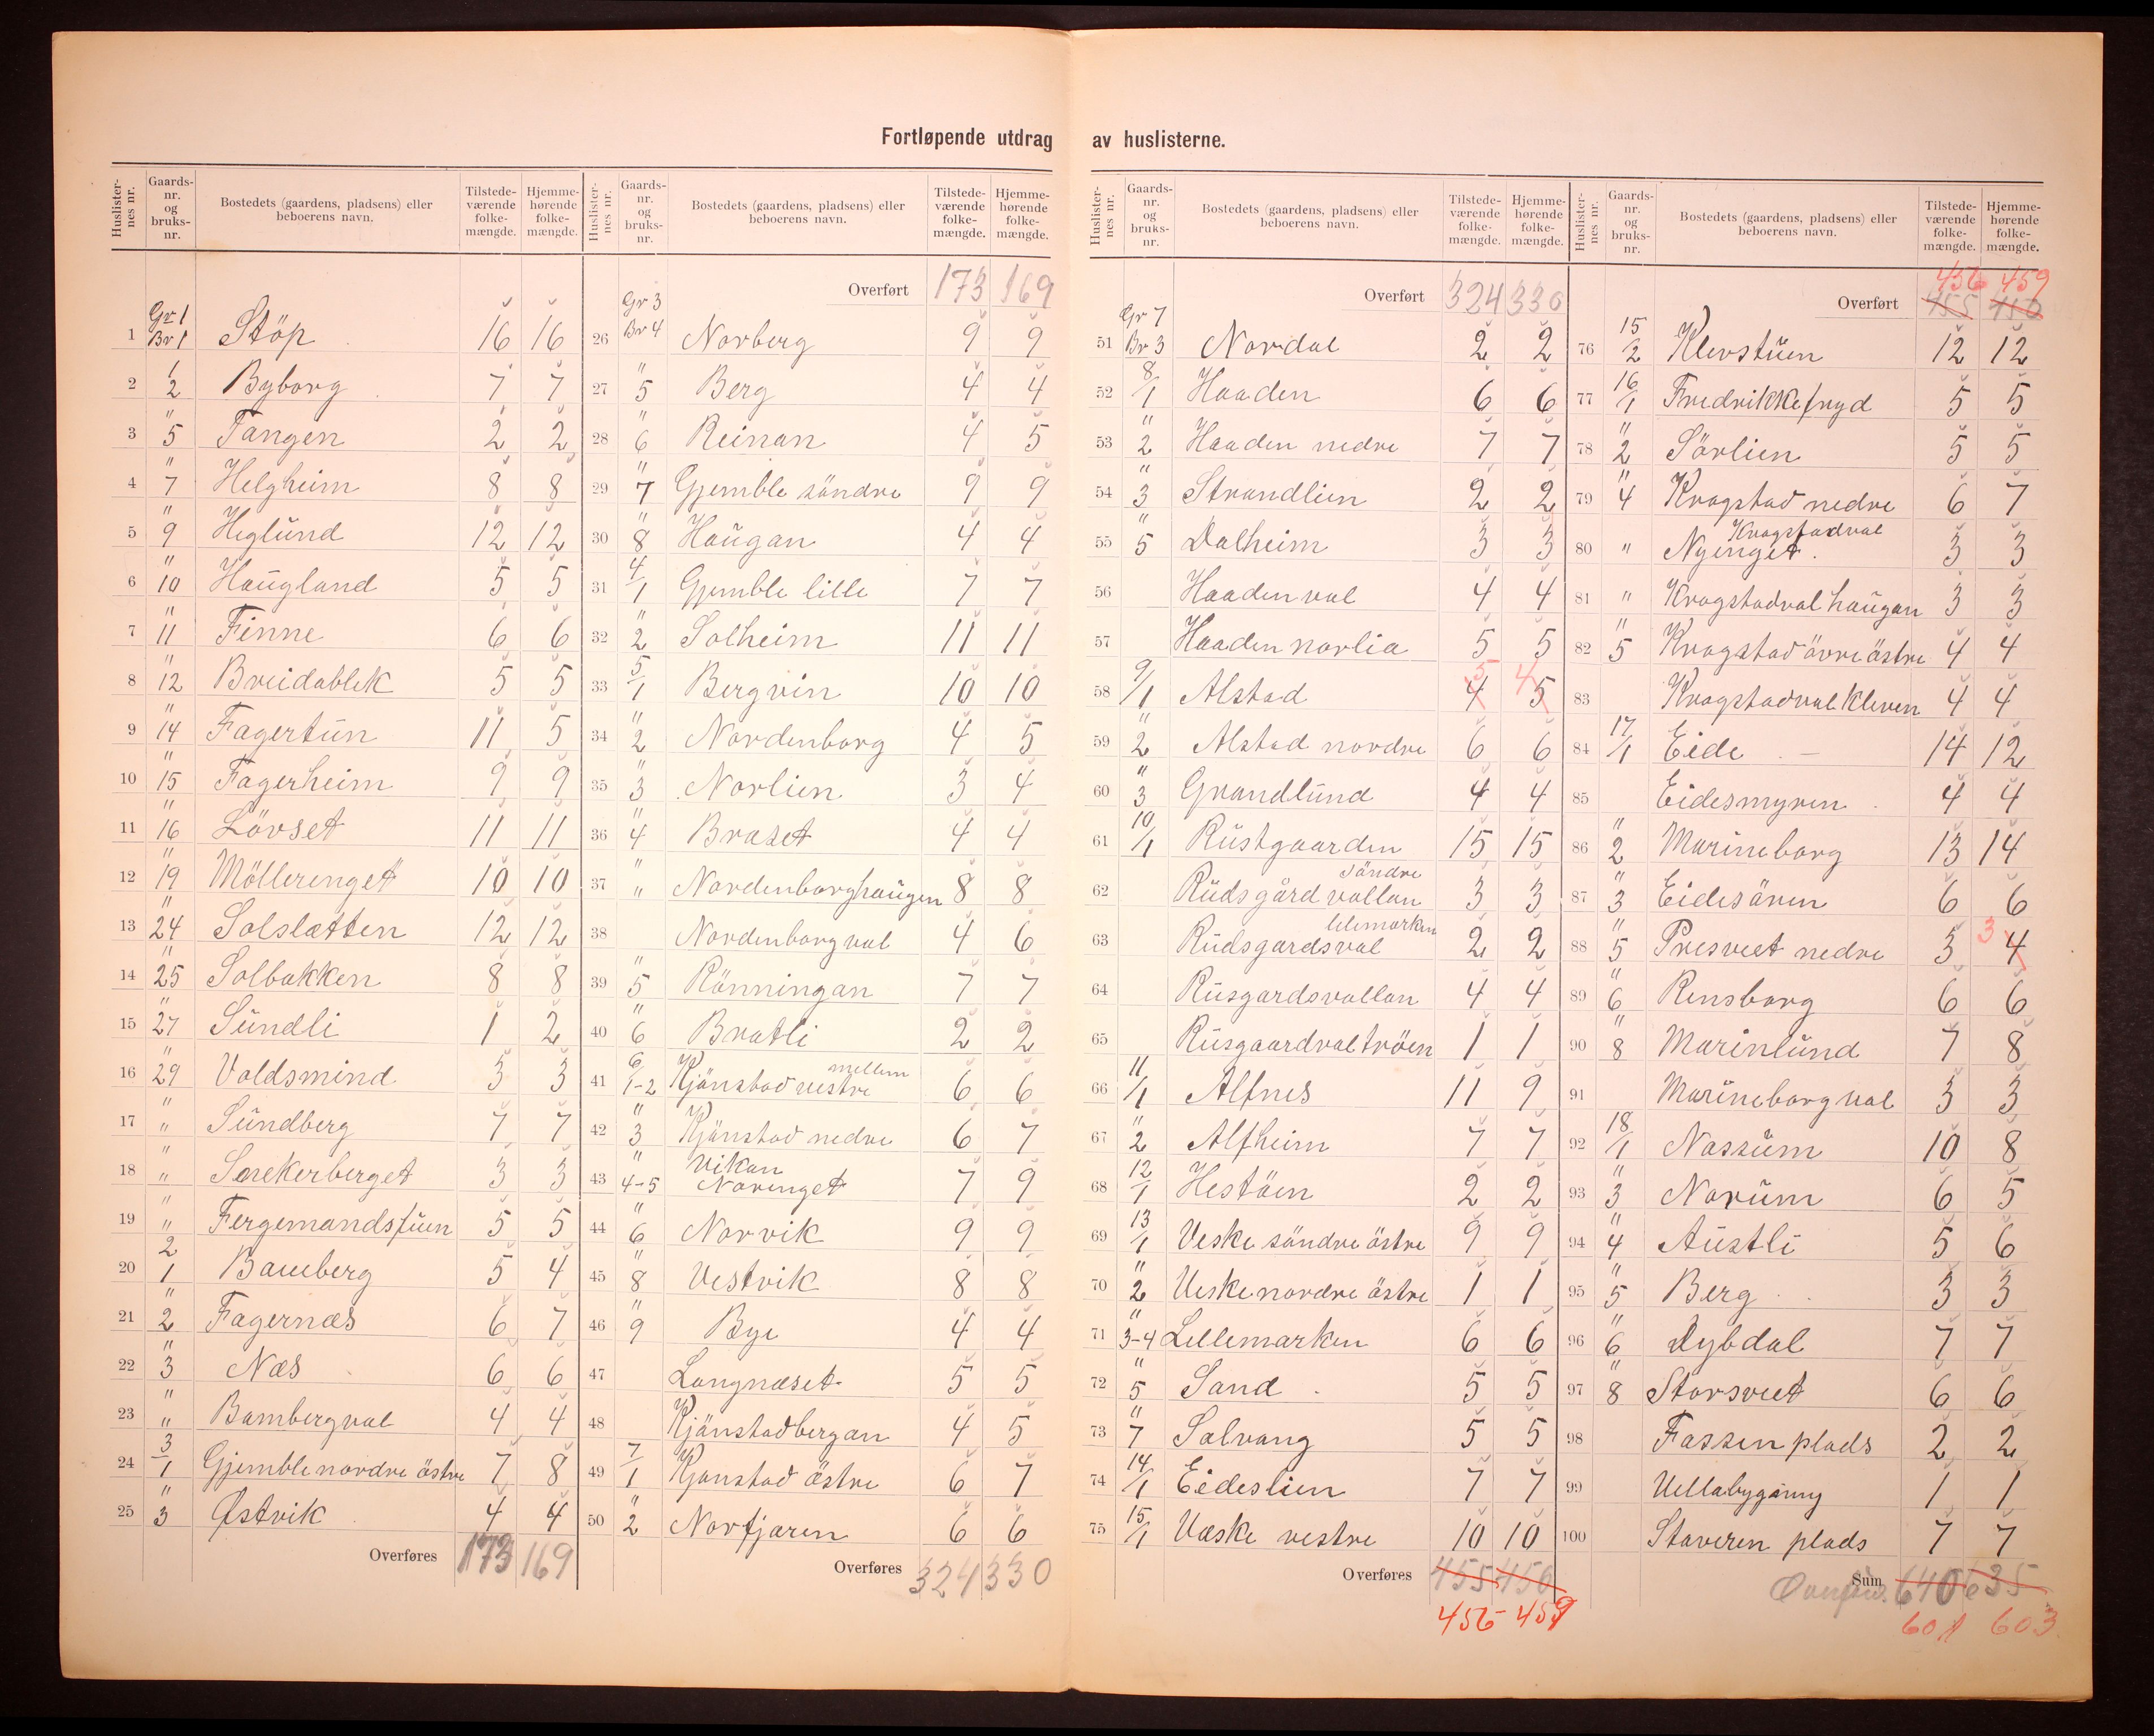 Fortløpende utdrag av huslisterne.
Huslisternes nr. Gaards-nr. og bruks-nr. Bostedets (gaardens, pladsens) eller beboerens navn. Tilstedeværende folkemængde. Hjemmehørende folkemængde.
1 Gr 1 Br 1 Störp 16 16
2 1/2 Byborg 7 7
3 " 5 Tangen 2 2
4 " 7 Helgheim 8 8
5 " 9 Heglünd 12 12
6 " 10 Haügland 5 5
7 " 11 Finne 6 6
8 " 12 Breidablik 5 5
9 " 14 Fagertün 11 5
10 " 15 Fagerheim 9 9
11 " 16 Lövset 11 11
12 " 19 Möllerenget 10 10
13 " 24 Solslætten 12 12
14 " 25 Solbakken 8 8
15 " 27 Sündli 1 2
16 " 29 Valdsmind 3 3
17 " " Sündberg 7 7
18 " " Snekerberget 3 3
19 " " Fergemandsstüen 5 5
20 2/1 Bamberg 5 4
21 " 2 Fagernæs 6 7
22 " 3 Næs 6 6
23 " " Bambergval 4 4
24 3/1 Gjemble nordre östre 7 8
25 " 3 Østvik 4 4
Overføres 173 169
Huslisternes nr. Gaards-nr. og bruks-nr. Bostedets (gaardens, pladsens) eller beboerens navn. Tilstedeværende folkemængde. Hjemmehørende folkemængde.
Overført 173 169
26 Gr 3 Br 4 Norberg 9 9
27 " 5 Berg 4 4
28 " 6 Reinan 4 5
29 " 7 Gjemble söndre 9 9
30 " 8 Haügan 4 4
31 4/1 Gjemble lille 7 7
32 " 2 Solheim 11 11
33 5/1 Bergvin 10 10
34 " 2 Nordenborg 4 5
35 " 3 Norlien 3 4
36 " 4 Braset 4 4
37 " Nordenborghaügen 8 8
38 Nordenborgval 4 6
39 " 5 Rönningan 7 7
40 " 6 Bratli 2 2
41 6/1-2 Kjönstad vestre mellem 6 6
42 " 3 Kjönstad nedre 6 7
43 " 4-5 Vikan Norenget 7 9
44 " 6 Norvik 9 9
45 " 8 Vestvik 8 8
46 " 9 Bye 4 4
47 Langnæset 5 5
48 Kjönstadbergan 4 5
49 7/1 Kjønstad östre 6 7
50 " 2 Norfjæren 6 6
Overføres 324 330
Huslisternes nr. Gaards-nr. og bruks-nr. Bostedets (gaardens, pladsens) eller beboerens navn. Tilstedeværende folkemængde. Hjemmehørende folkemængde.
Overført 324 330
51 Gr 7 Br 3 Nordal 2 2
52 8/1 Haaden 6 6
53 " 2 Haaden nedre 7 7
54 " 3 Strandlien 2 2
55 " 5 Dalheim 3 3
56 Haadenval 4 4
57 Haaden norlia 5 5
58 9/1 Alstad 4 5 5 4
59 " 2 Alstad nordre 6 6
60 " 3 Grandlünd 4 4
61 10/1 Rüstgaarden 15 15
62 Rüdsgård vollan söndre 3 3
63 Rüdsgardsval lilemarken 2 2
64 Rüsgardsvollan 4 4
65 Rüsgaardval tröen 1 1
66 11/1 Alfnes 11 9
67 " 2 Alfheim 7 7
68 12/1 Hestöen 2 2
69 13/1 Veske söndre östre 9 9
70 " 2 Veske nordre östre 1 1
71 " 3-4 Lellemarken 6 6
72 " 5 Sand 5 5
73 " 7 Solvang 5 5
74 14/1 Eideslien 7 7
75 15/1 Væske vestre 10 10
Overføres 455 456
456 459
Huslisternes nr. Gaards-nr. og bruks-nr. Bostedets (gaardens, pladsens) eller beboerens navn. Tilstedeværende folkemængde. Hjemmehørende folkemængde.
456 459
Overført 455 450
76 15/2 Klevstüen 12 12
77 16/1 Fredrikkefryd 5 5
78 " 2 Sörlien 5 5
79 " 4 Kragstad nedre 6 7
80 " Kragstadval Nyenget 3 3
81 " Kragstadval haügan 3 3
82 " 5 Kragstad övre östre 4 4
83 Kragstadval Kleven 4 4
84 17/1 Eide 14 12
85 Eidesmyren 4 4
86 " 2 Marineborg 13 14
87 " 3 Eidesören 6 6
88 " 5 Presveet nedre 3 4 3
89 " 6 Rensborg 6 6
90 " 8 Marinlünd 7 8
91 Marineborgval 3 3
92 18/1 Nossüm 10 8
93 " 3 Norüm 6 5
94 " 4 Aüstli 5 6
95 " 5 Berg 3 3
96 " 6 Dybdal 7 7
97 " 8 Storsveet 6 6
98 Fassen plads 2 2
99 1 1
100 Staveren plads 7 7
Sum 640 635
601 603